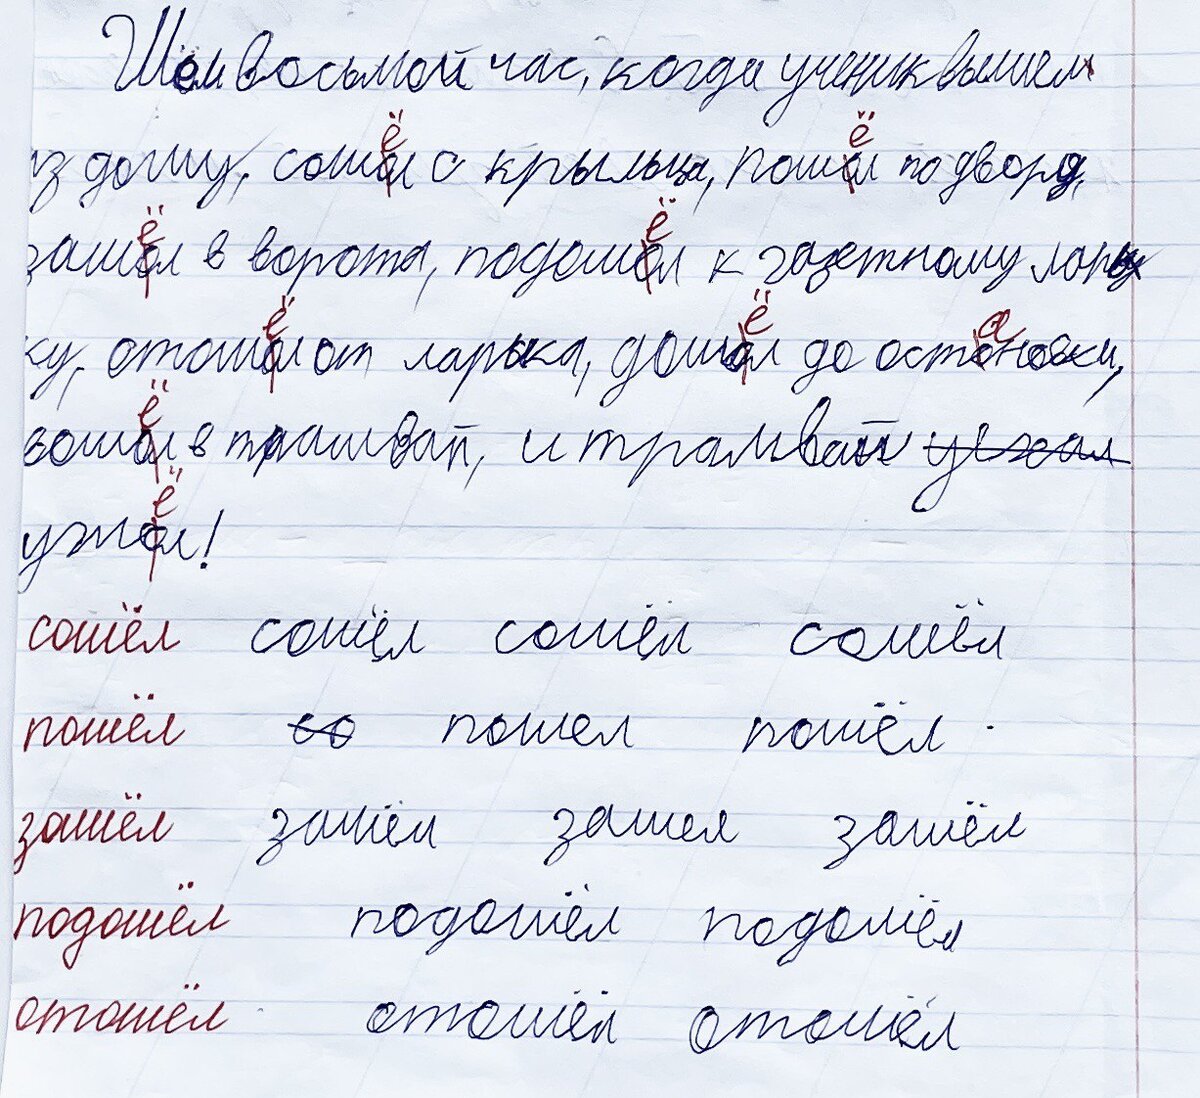 Шёл восьмой час, когда ученик вышел
из дому, сошол с крыльца, пошол по двору,
зашол в ворота, подошол к газетному ларь
ку, отошол от ларька, дошол до остоновки,
вошол в трамвай, и трамвай уехал
ушол!
сошёл сошёл сошёл сошёл
пошёл со пошел пошёл
зашёл зашёл зашел зашёл
подошёл подошёл подошёл
отошёл отошёл отошёл